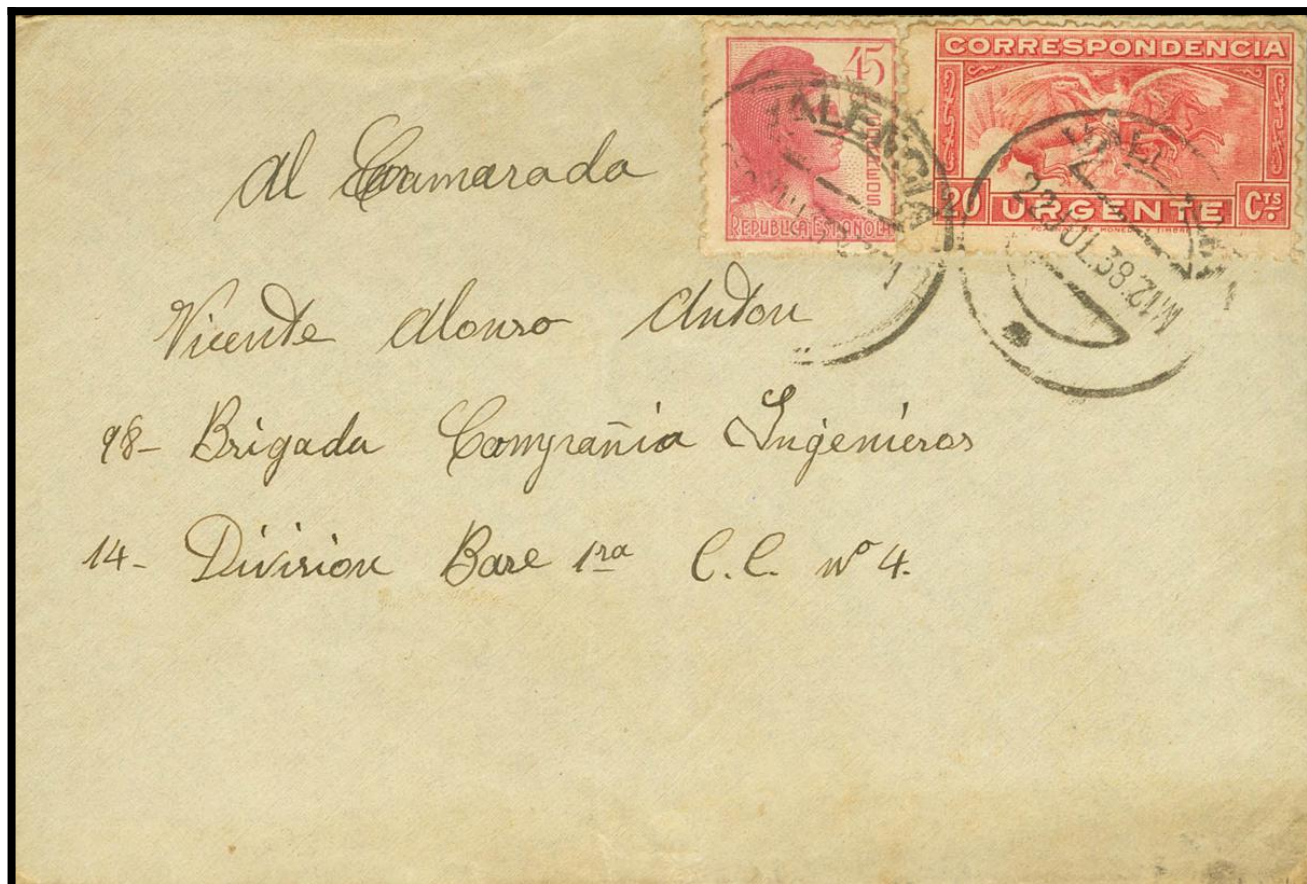 45
CORREOS
REPUBLICA ESPAÑOLA
CORRESPONDENCIA
20 URGENTE CTS
VALENCIA
22 JUL 38. 12 M
Al Camarada
Vicente Alonso Anton
98- Brigada Compañia Ingenieros
14- División Base 1ra C.C. nº 4.